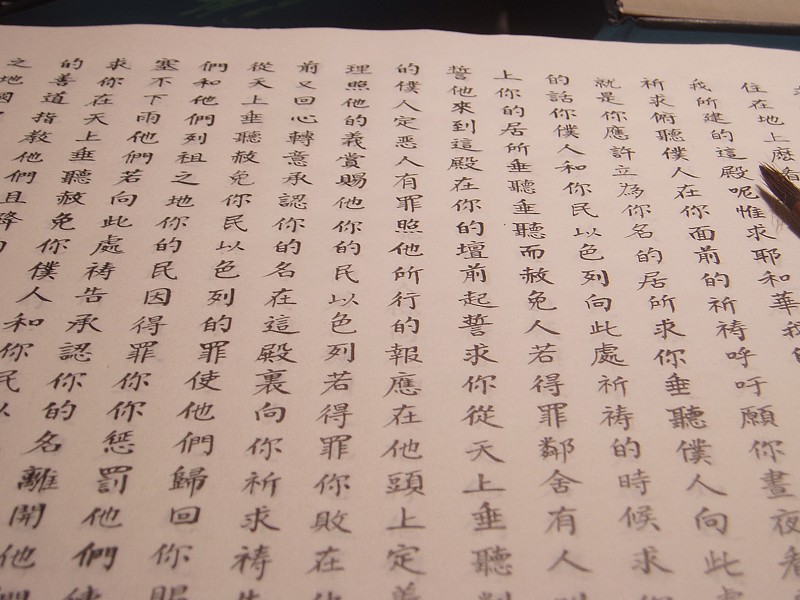 住在地上
我所建的這殿呢惟求耶和華我的
祈求俯聽僕人在你面前的祈禱呼吁願你晝夜看
就是你應許立為你名的居所求你垂聽僕人向此處
的話你僕人和你民以色列向此處祈禱的時候求你
上你的居所垂聽垂聽而赦免人若得罪鄰舍有人
誓他來到這殿在你的壇前起誓求你從天上垂聽判
的僕人定惡人有罪照他所行的報應在他頭上定義
理照他的義賞賜他你的民以色列若得罪你敗在
前又回心轉意承認你的名在這殿裏向你祈求禱告
從天上垂聽赦免你民以色列的罪使他們歸回你賜
們和他們列祖之地你的民因得罪你你懲罰他們使
塞不下雨他們若向此處禱告承認你的名離開他們
求你在天上垂聽赦免你僕人和你民以
的善道指教他們且降
之地